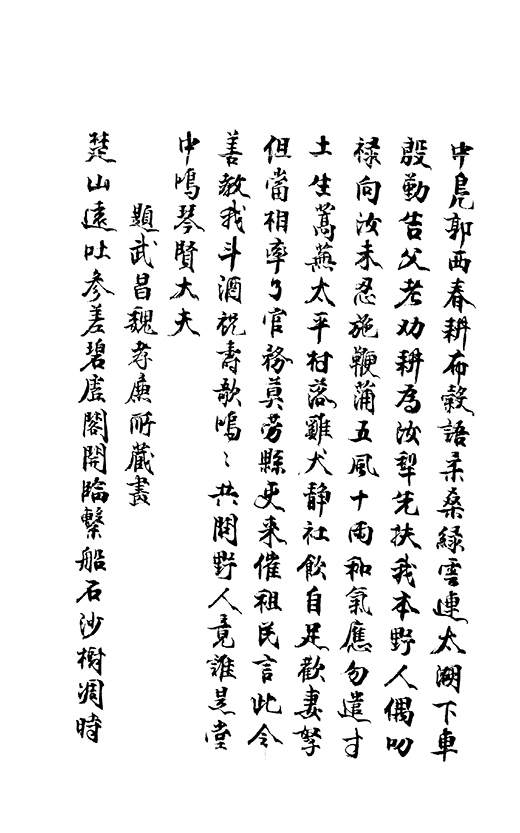 中鳧郭西春耕布穀語柔桑緑雲連太湖下車
殷勤告父老劝耕為汝犁先扶我本野人偶叨
禄向汝未忍施鞭蒲五風十雨和氣應勿遣寸
土生蒿蕪太平村落雞犬静社飲自足歡妻孥
但當相率了官務莫勞縣吏来催租民言此令
善教我斗酒祝壽歌鳴〻共間野人竟誰是堂
中鳴琴賢大夫
題武昌魏孝廉所蔵畫
楚山遠吐参差碧虚閣開臨繫船石沙樹凋時